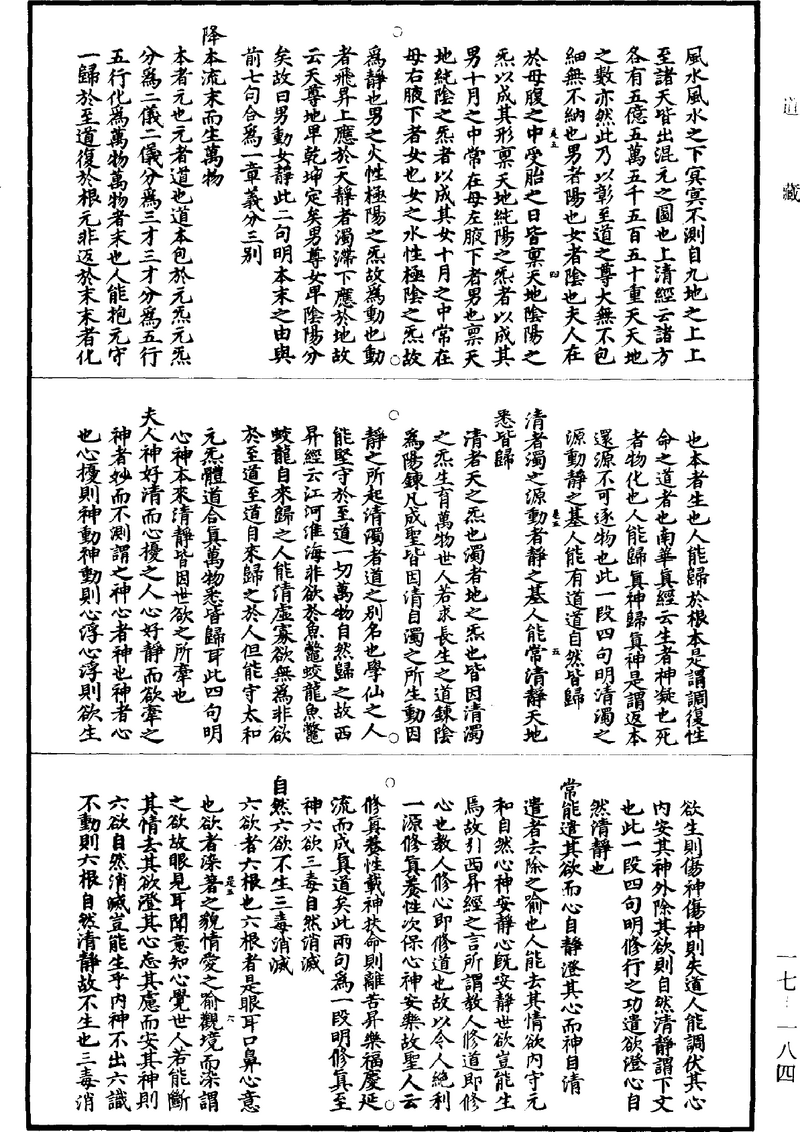 道藏
風水風水之下冥冥不測自九地之上上
至諸天皆出混元之圖也上清經云諸方
各有五億五萬五千五百五十重天天地
之數亦然此乃以彰至道之尊大無不包
細無不納也男者陽也女者陰也夫人在
於母腹之中受胎之日皆禀天地陰陽之
炁以成其形禀天地純陽之炁者以成其
男十月之中常在母左腋下者男也禀天
地純陰之炁者以成其女十月之中常在
母右腋下者女也女之水性極陰之炁故
爲靜也男之火性極陽之炁故爲動也動
者飛昇上應於天靜者濁滯下應於地故
云天尊地卑乾坤定矣男尊女卑陰陽分
矣故曰男動女靜此二句明本末之由與
前七句合爲一章義分三別
降本流末而生萬物
本者元也元者道也道本包於元炁元炁
分爲二儀二儀分爲三才三才分爲五行
五行化爲萬物萬物者末也人能抱元守
一歸於至道復於根元非返於末末者化
也本者生也人能歸於根本是謂調復性
命之道者也南華真經云生者神凝也死
者物化也人能歸真神歸真神是謂返本
還源不可逐物也此一段四句明清濁之
源動靜之基人能有道道自然皆歸
清者濁之源動者靜之基人能常清靜天地
悉皆歸
清者天之炁也濁者地之炁也皆因清濁
之炁生育萬物世人若求長生之道鍊陰
爲陽鍊凡成聖皆因清自濁之所生動因
靜之所起清濁者道之別名也學仙之人
能堅守於至道一切萬物自然歸之故西
昇經云江河淮海非欲於魚鼈蛟龍魚鼈
蛟龍自來歸之人能清虛寡欲無爲非欲
於至道至道自來歸之於人但能守太和
元炁體道合真萬物悉皆歸耳此四句明
心神本來清靜皆因世欲之所牽也
夫人神好清而心擾之人心好靜而欲牽之
神者妙而不測謂之神心者神也神者心
也心擾則神動神動則心浮心浮則欲生
欲生則傷神傷神則失道人能調伏其心
内安其神外除其欲則自然清靜謂下文
也此一段四句明修行之功遣欲澄心自
然清靜也
常能遣其欲而心自靜澄其心而神自清
遣者去除之喻也人能去其情欲内守元
和自然心神安靜心既安靜世欲豈能生
焉故引西昇經之言所謂教人修道即修
心也教人修心即修道也故以令人絶利
一源修真養性次保心神安樂故聖人云
修真養性載神扶命則離苦昇樂福慶延
流而成真道矣此兩句爲一段明修真至
神六欲三毒自然消滅
自然六欲不生三毒消滅
六欲者六根也六根者是眼耳口鼻心意
也欲者染著之貌情愛之喻觀境而染謂
之欲故眼見耳聞意知心覺世人若能斷
其情去其欲澄其心忘其慮而安其神則
六欲自然消滅豈能生乎内神不出六識
不動則六根自然清靜故不生也三毒消
一七-一八四